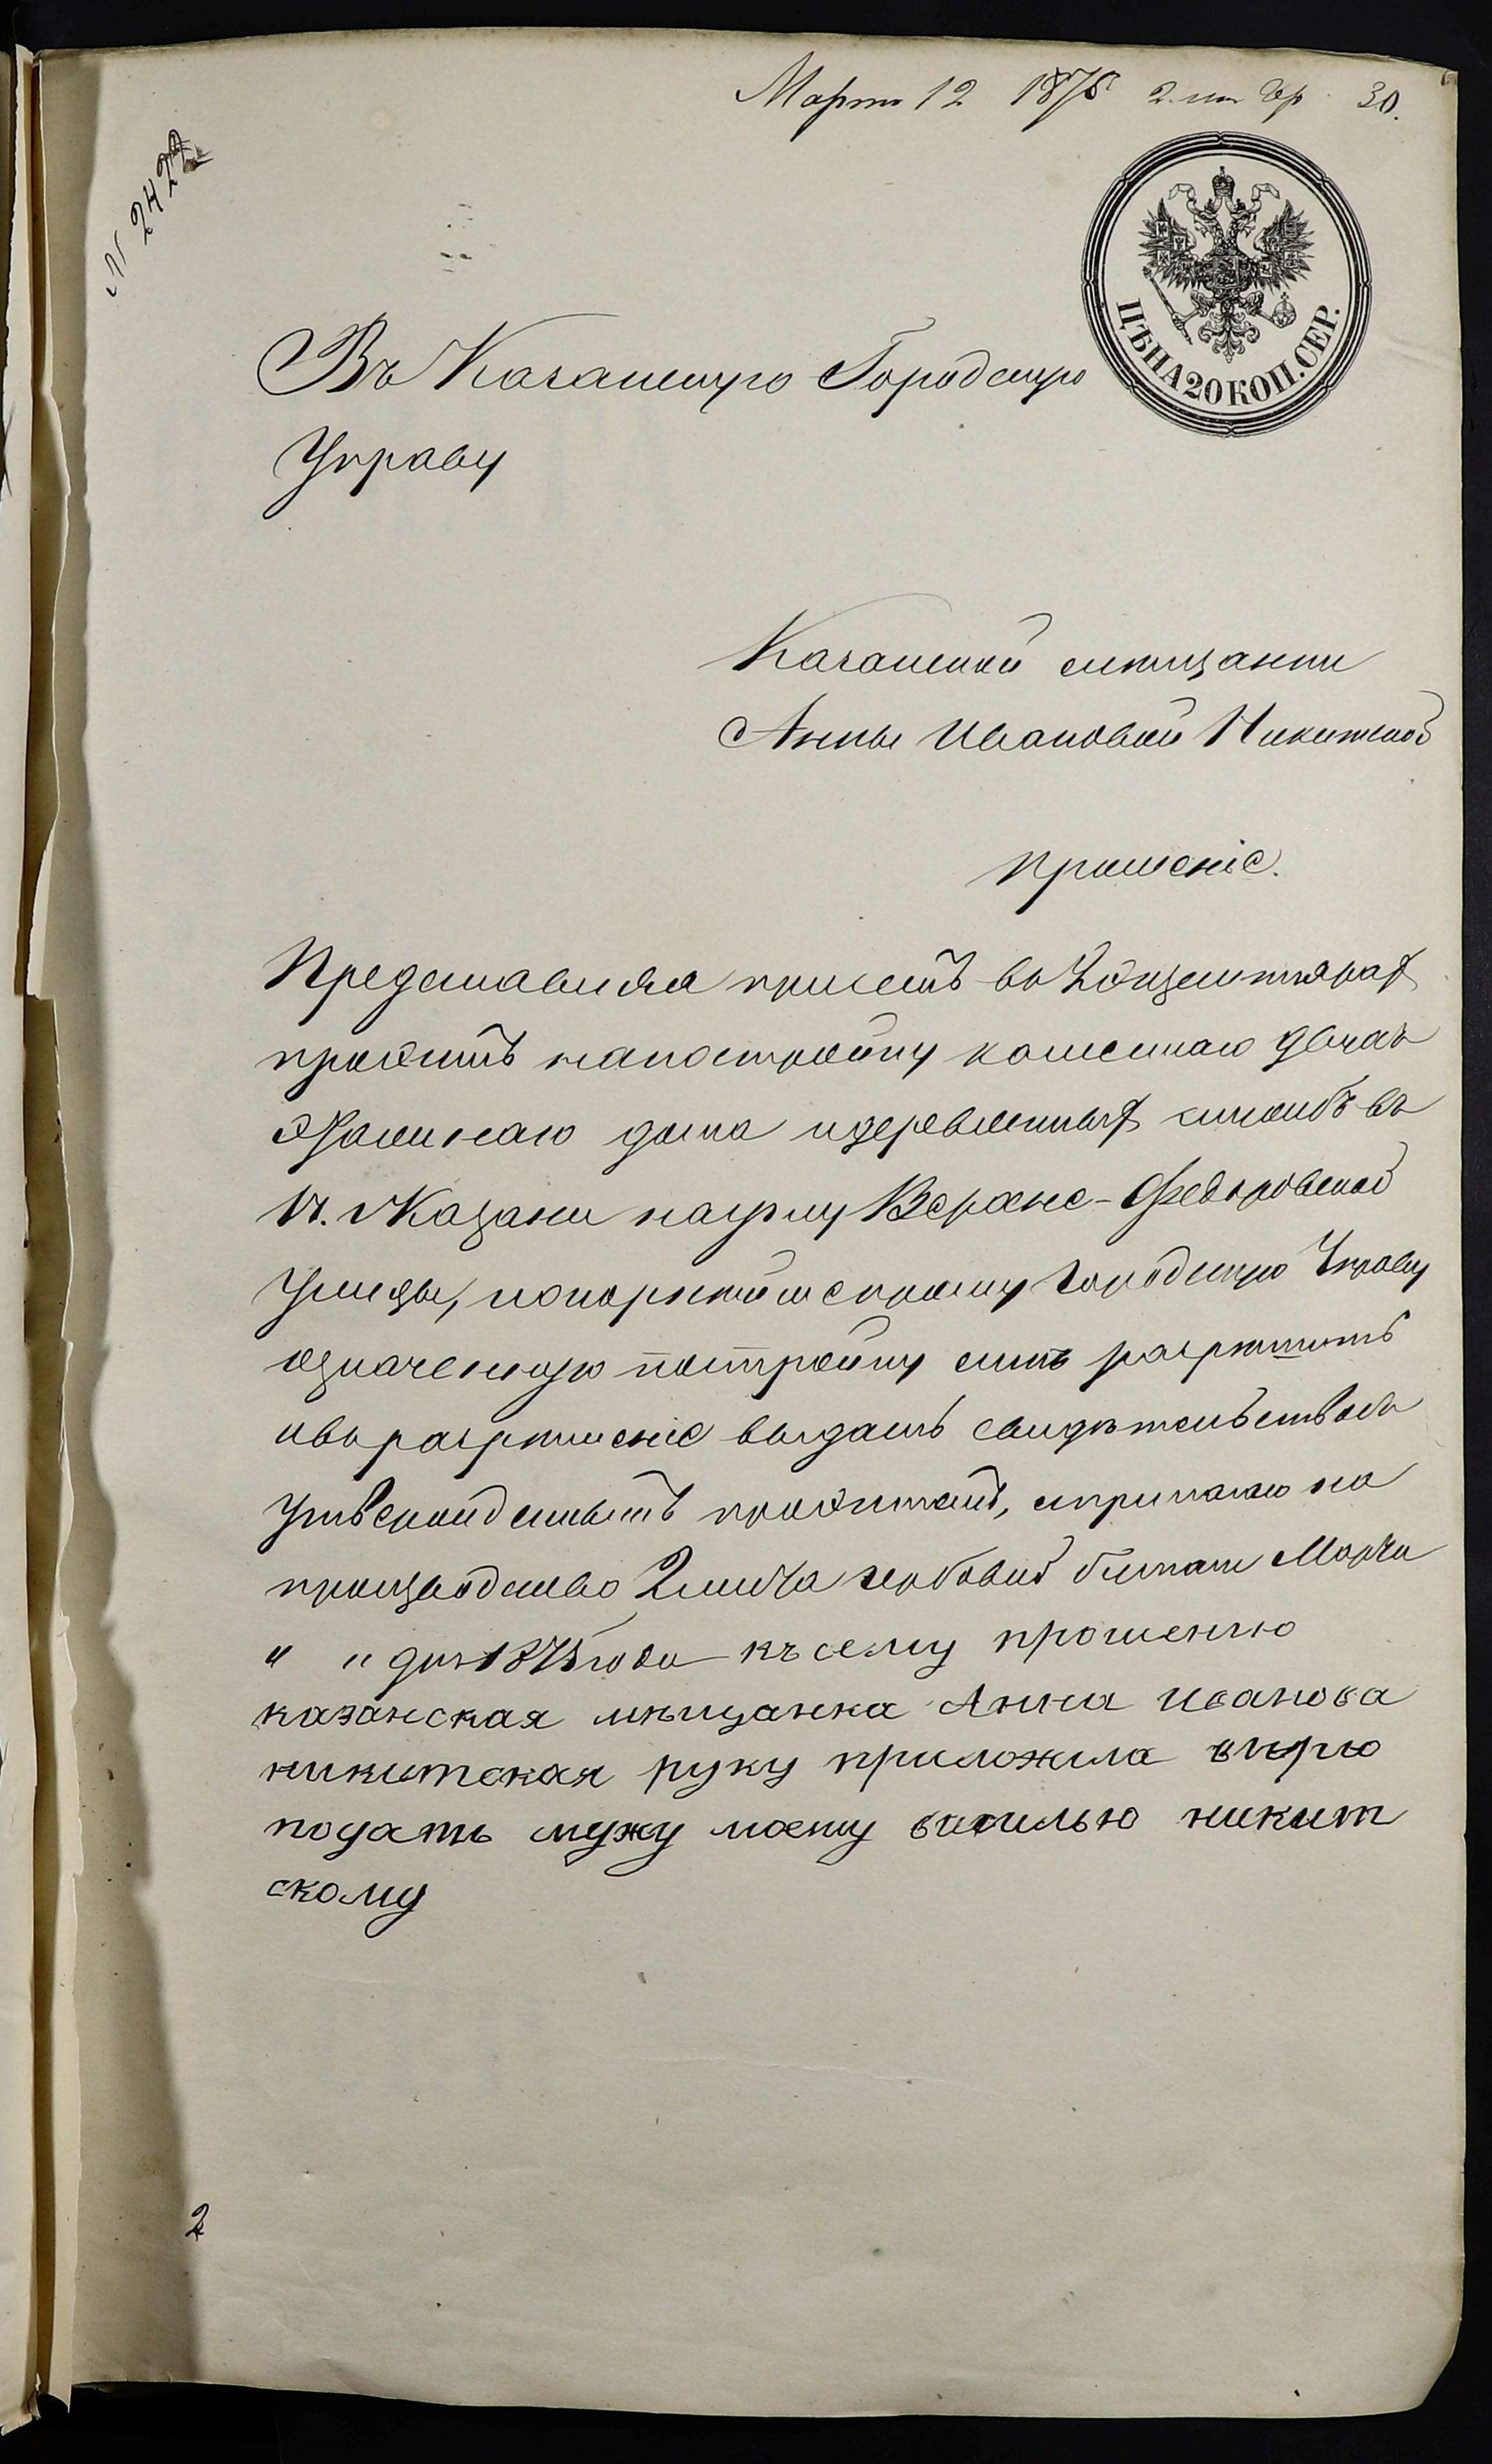 Мартъ 12 1875 30.
№ 2422
ЦѢНА 20 КОП. СЕР.
Въ Казанскую Городскую
Управу
Казанской мѣщанки
Анны Ивановой Никитской
прошеніе.
Представляя присемъ въ 2хъ экземплярах
проэктъ на постройку каменнаго двухъ
этажнаго дома и деревянныхъ службъ въ
г. Казани на углу Верхне-Федоровской
Улицы, покорнѣйше прошу Городскую Управу
означенную постройку мнѣ разрѣшить
и въ разрѣшеніе выдать свидѣтельство съ
проэктомъ, и прилагаю на
производство 2 листа гербовой бумаги Марта
" " дня 1875 года къ сему прошенію
казанская мѣщанка Анна иванова
никитская руку приложила вѣрю
подать мужу моему василью никит
скому
2